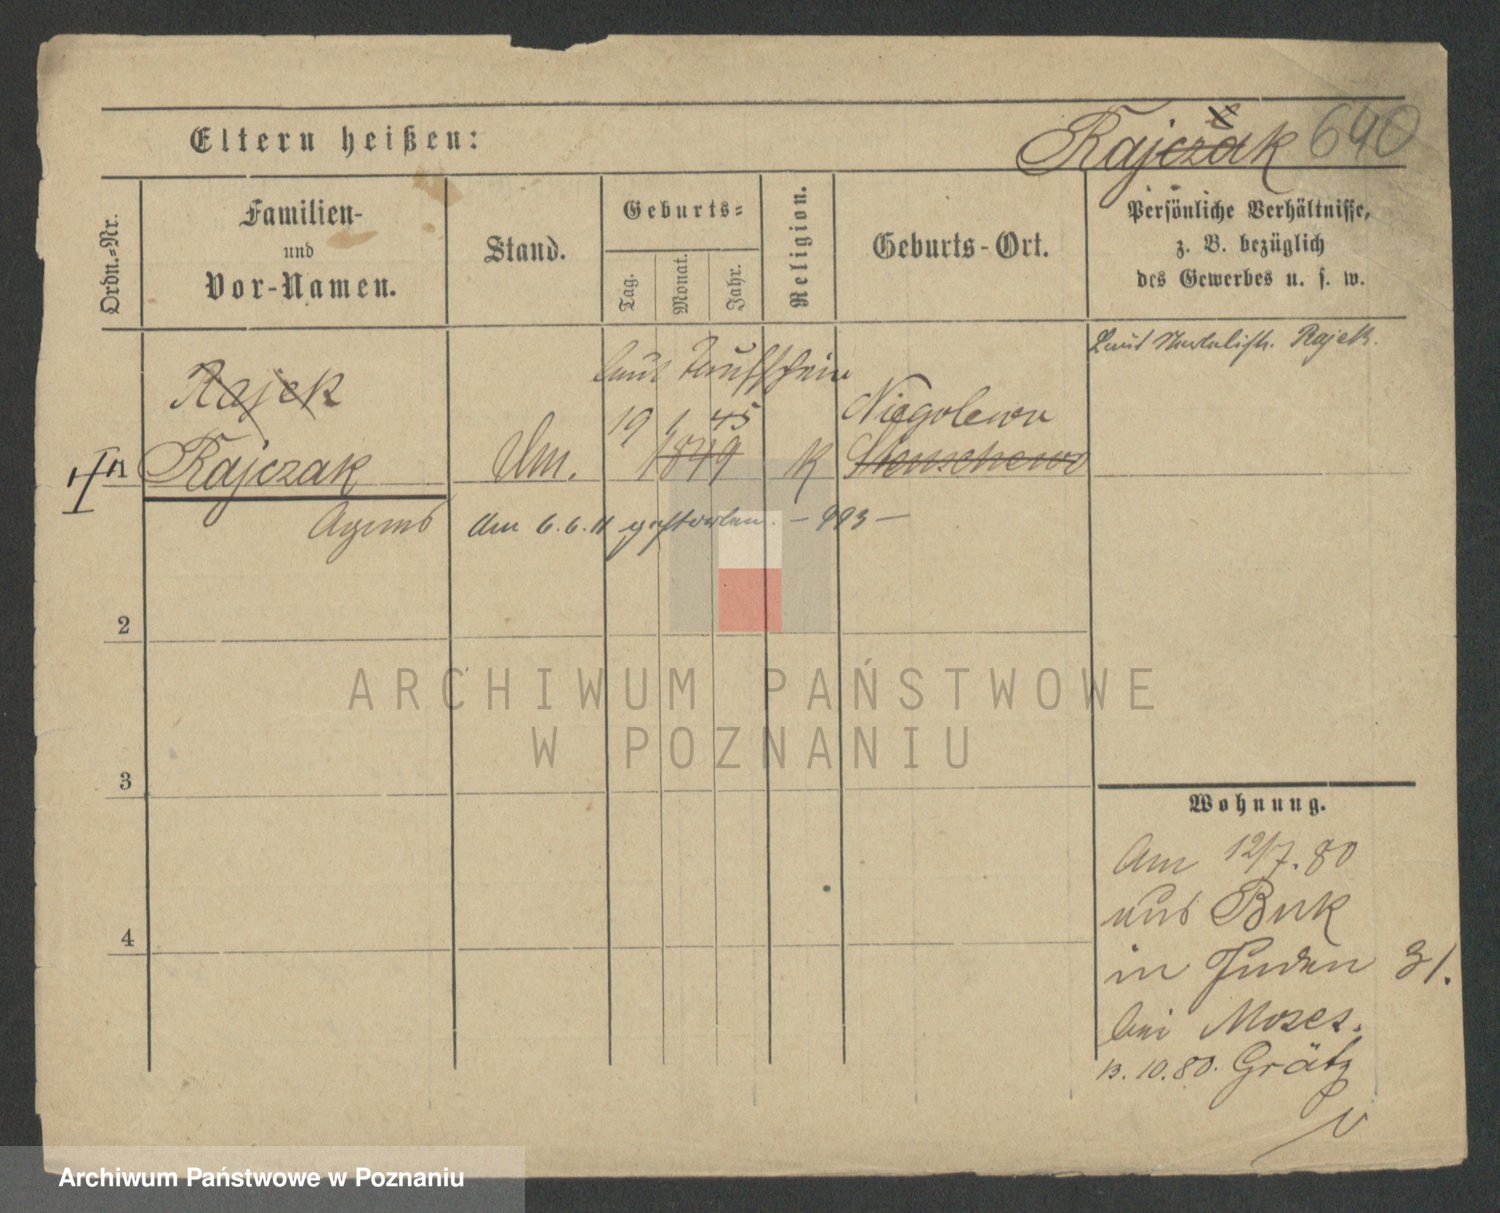 Eltern heißen:
Rajczak 640
Ordn.-Nr.
Familien-
und
Vor-Namen.
Stand.
Geburts-
Tag.
Monat.
Jahr.
Religion.
Geburts-Ort.
Persönliche Verhältnisse,
z. B. bezüglich
des Gewerbes u. s. w.
Laut Rajek.
laut Taufschein
Rajek
19 1 45 Niegolewo
1 Rajczak Um. 1849 K
Agnes am 6.6.11 gestorben. – 993 –
2
ARCHIWUM PAŃSTWOWE
W POZNANIU
3
Wohnung.
Am 12/7. 80
aus Buk
in Juden 31.
bei Moses.
13.10.80. Grätz
4
Archiwum Państwowe w Poznaniu